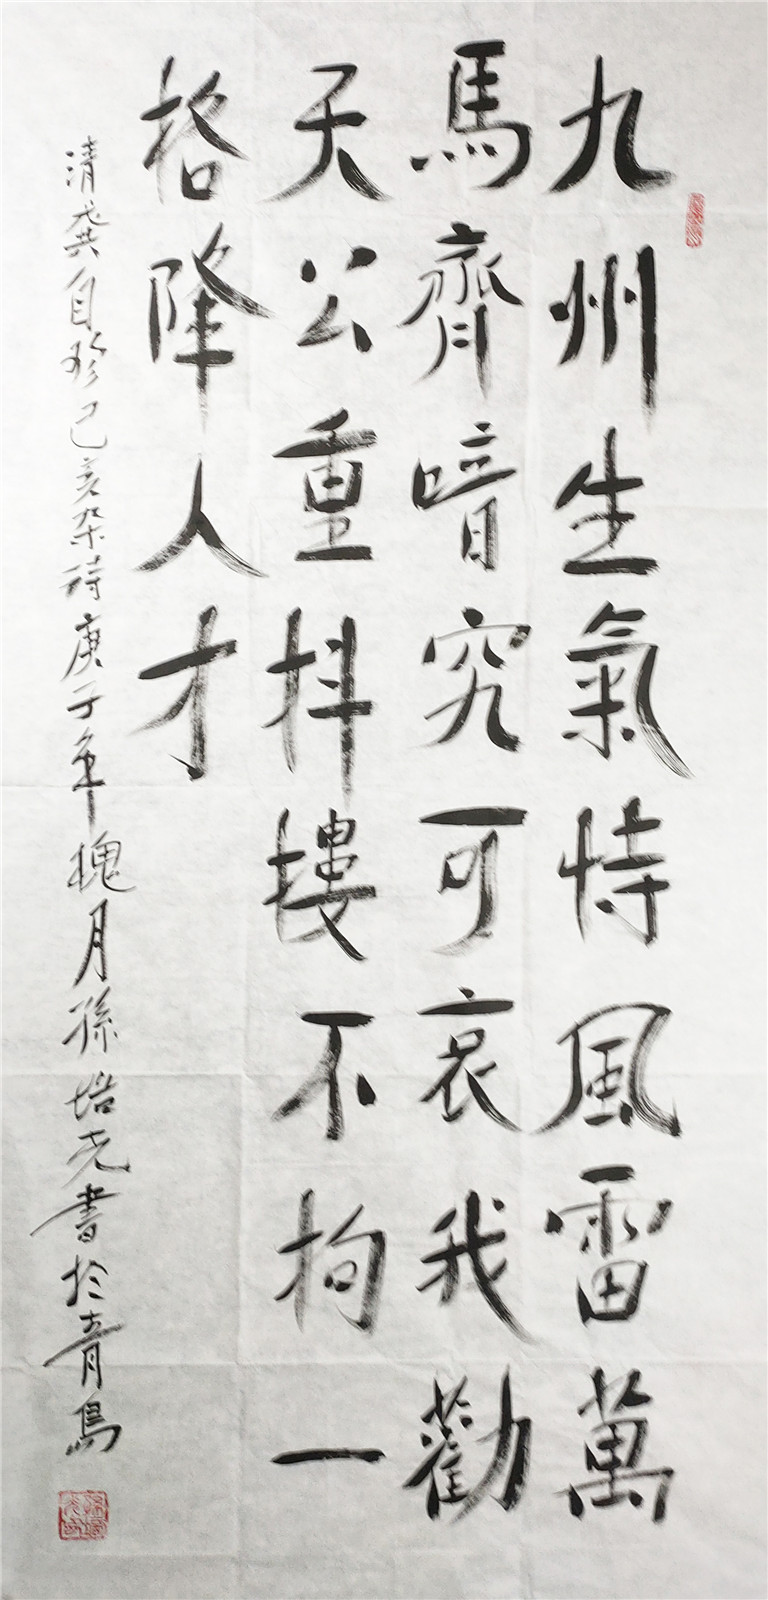 九州生氣恃風雷萬
馬齊喑究可哀我勸
天公重抖擻不拘一
格降人才
清龔自珍己亥杂诗庚子年槐月孫培尧書於青島